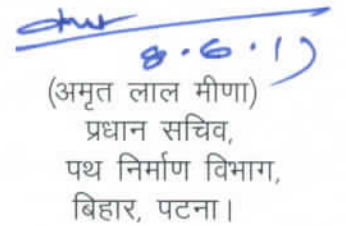 8.6.17
(अमृत लाल मीणा)
प्रधान सचिव,
पथ निर्माण विभाग,
बिहार, पटना।